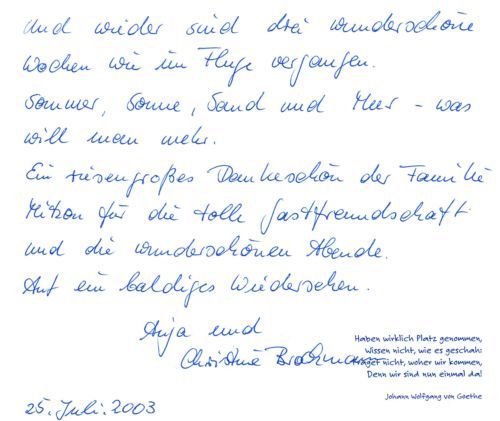 Und wieder sind drei wunderschöne
Wochen wie im Fluge vergangen.
Sommer, Sonne, Sand und Meer – was
will man mehr.
Ein riesengroßes Dankeschön der Familie
für die tolle Gastfreundschaft
und die wunderschönen Abende.
Auf ein baldiges Wiedersehen.
Anja und
Christine
Haben wirklich Platz genommen,
Wissen nicht, wie es geschah;
Fraget nicht, woher wir kommen,
Denn wir sind nun einmal da!
Johann Wolfgang von Goethe
25. Juli. 2003